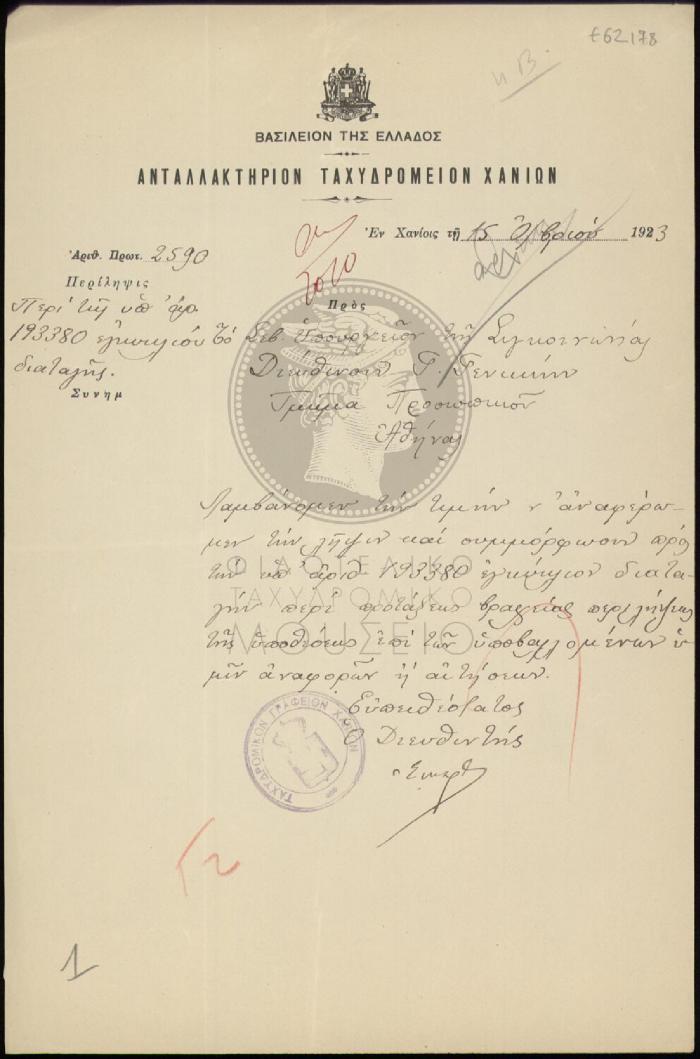 ε62178
ΒΑΣΙΛΕΙΟΝ ΤΗΣ ΕΛΛΑΔΟΣ
ΑΝΤΑΛΛΑΚΤΗΡΙΟΝ ΤΑΧΥΔΡΟΜΕΙΟΝ ΧΑΝΙΩΝ
Ἐν Χανίοις τῇ 15 1923
Ἀριθ. Πρωτ. 2590
Περίληψις
Περὶ τῆς ὑπ' ἀρ.
193380 ἐγκυκλίου
διαταγῆς.
Συνημ
Πρὸς
Τὸ Σεβ. Ὑπουργεῖον τῆς Συγκοινωνίας
Διεύθυνσιν Τ. Γενικὴν
Τμῆμα Προσωπικοῦ
Ἀθήνας
Λαμβάνομεν τὴν τιμὴν ν' ἀναφέρω-
μεν τὴν λῆψιν καὶ συμμόρφωσιν πρὸς
τὴν ὑπ' ἀριθ. 193380 ἐγκύκλιον διατα-
γὴν περὶ προτάξεως βραχείας περιλήψεως
τῆς ὑποθέσεως ἐπὶ τῶν ὑποβαλλομένων ὑ-
μῖν ἀναφορῶν ἢ αἰτήσεων.
Εὐπειθέστατος
Ὁ Διευθυντής
ΤΑΧΥΔΡΟΜΙΚΟΝ ΓΡΑΦΕΙΟΝ ΧΑΝΙΩΝ
ΦΙΛΟΤΕΛΙΚΟ
ΤΑΧΥΔΡΟΜΙΚΟ
ΜΟΥΣΕΙΟ
1